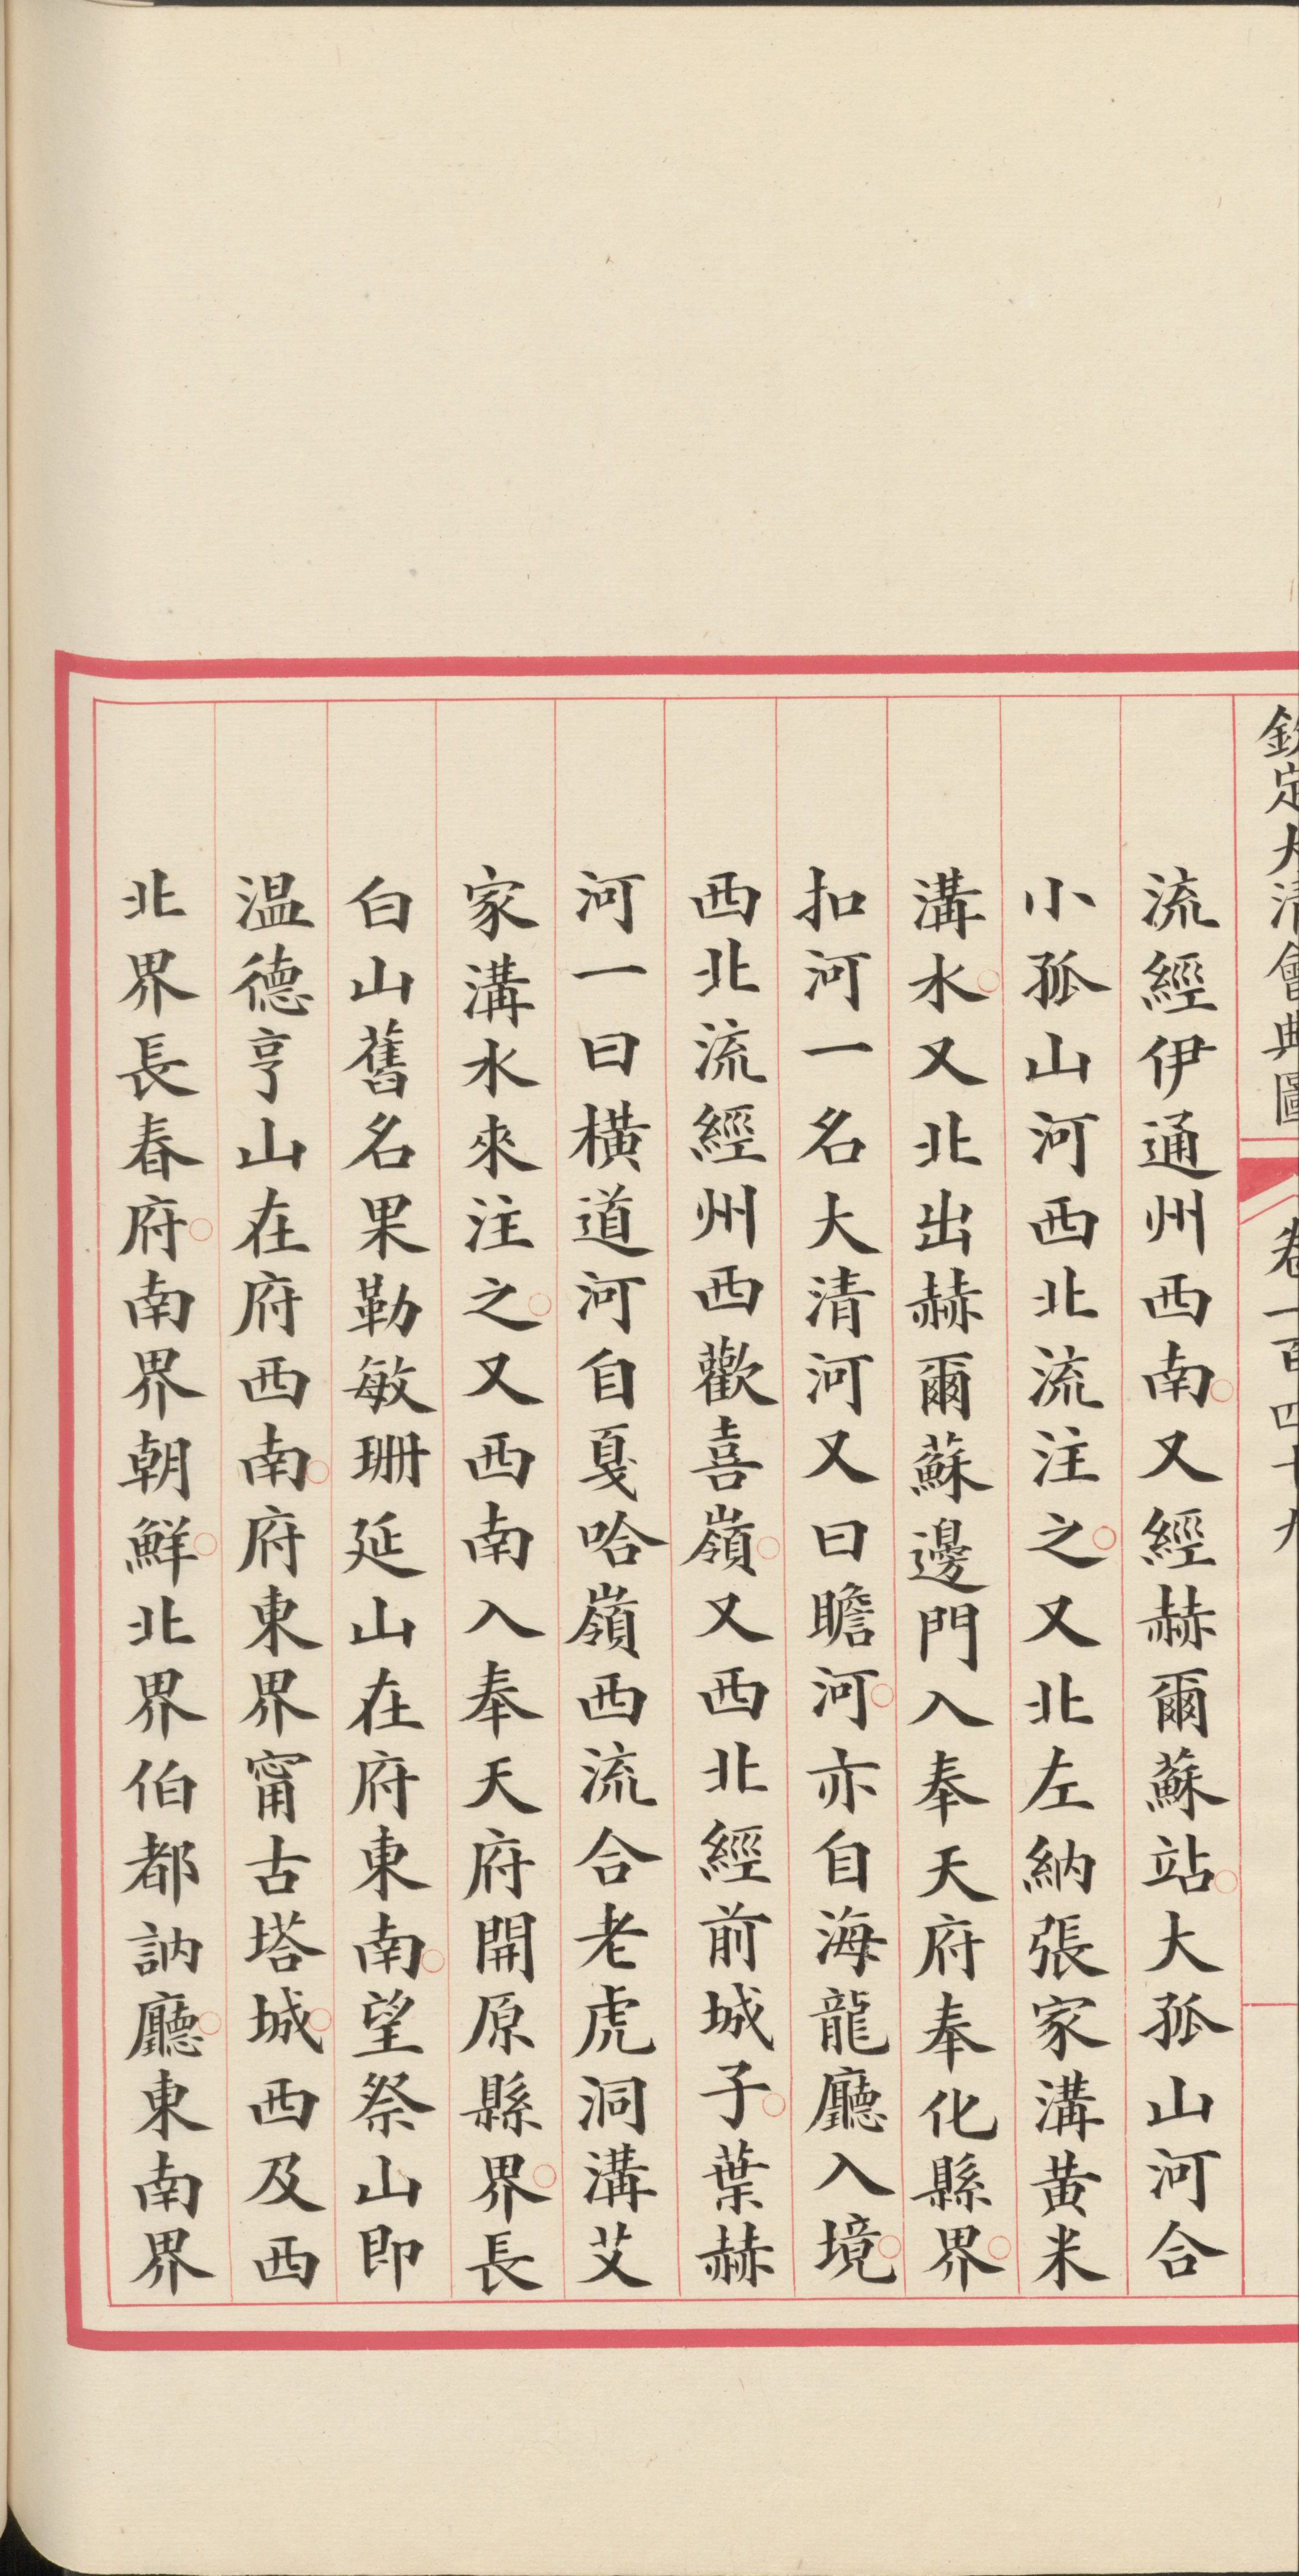 欽定大清會典圖 卷一百四十九
流經伊通州西南○又經赫爾蘇站○大孤山河合
小孤山河西北流注之○又北左納張家溝黃米
溝水○又北出赫爾蘇邊門入奉天府奉化縣界○
扣河一名大清河又曰瞻河○亦自海龍廳入境○
西北流經州西歡喜嶺○又西北經前城子○葉赫
河一曰橫道河自戛哈嶺西流合老虎洞溝艾
家溝水來注之○又西南入奉天府開原縣界○長
白山舊名果勒敏珊延山在府東南○望祭山即
温德亨山在府西南○府東界甯古塔城○西及西
北界長春府○南界朝鮮○北界伯都訥廳○東南界